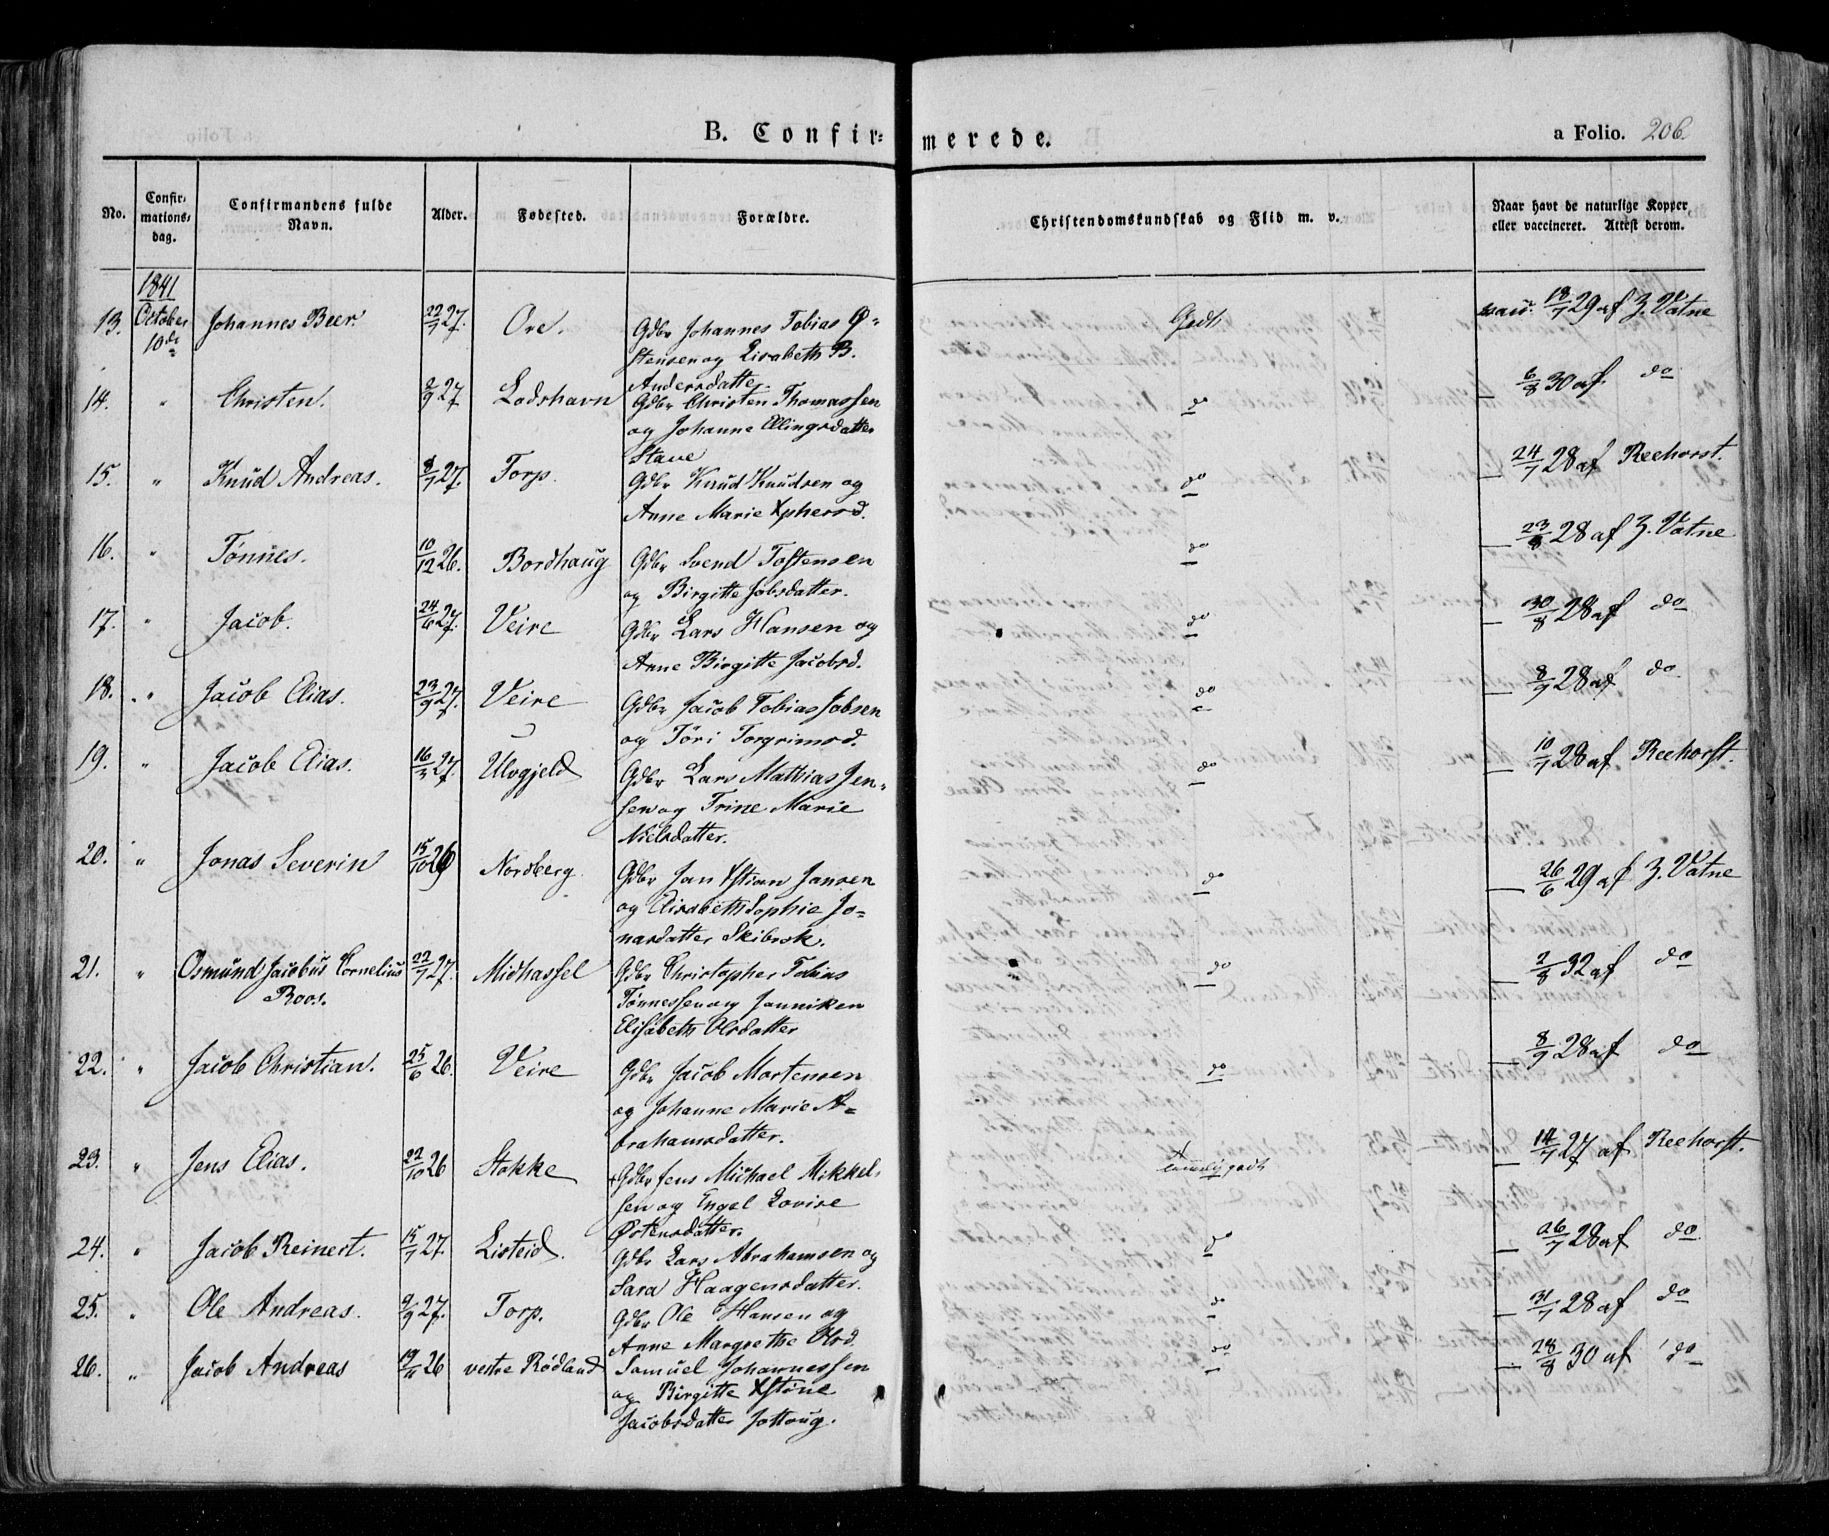 B. Confirmerede.
a Folio. 206.
No.
Confirmations-dag.
Confirmandens fulde Navn.
Alder.
Fødested.
Forældre.
Christendomskundskab og Flid m. v.
Naar havt de naturlige Kopper eller vaccineret. Attest derom.
1841
October 10de
13. Johannes Beer. 22/7 27. Ore. Gdbr Johannes Tobias Ø- Godt vac: 18/7 29 af Z. Vatne
stensen og Lisabeth B.
Andersdatter.
14. " Christen. 2/9 27 Lodshavn Gdbr Christen Thomassen do 6/8 30 af do
og Johanne Ellingsdatter
Stave
15. " Knud Andreas. 8/7 27. Torp. Gdbr Knud Knudsen og do 24/7 28 af Reehorst.
Anne Marie Xphersd.
16. " Tønnes. 10/12 26. Bordhaug Gdbr Svend Tostensen do 23/8 28 af Z. Vatne
og Birgitte Jobsdatter.
17. " Jacob. 24/6 27. Veire Gdbr Lars Hansen og do 30/8 28 af do
Anne Birgitte Jacobsd.
18. " Jacob Elias. 23/9 27. Veire Gdbr Jacob Tobias Jobsen do 8/9 28 af do
og Töri Torgrimsd.
19. " Jacob Elias. 16/3 27. Ulvgjeld Gdbr Lars Mathias Jen- do 10/7 28 af Reehorst.
sen og Trine Marie
Nielsdatter.
20. " Jonas Severin 15/10 26 Nordberg Gdbr Jan Xstian Jansen do 26/6 29 af Z. Vatne
og Elisabeth Sophie Jo-
nasdatter Skibsk.
21. " Osmund Jacobus Cornelius 22/7 27. Midhassel Gdbr Christopher Tobias do 2/8 32 af do
Roos. Tønnessen og Janniken
Elisabeth Olsdatter
22. " Jacob Christian. 25/6 26. Veire Gdbr Jacob Mortensen do 8/9 28 af do
og Johanne Marie A-
brahamsdatter.
23. " Jens Elias. 22/10 26 Stokke +Gdbr Jens Michael Mikkel- temmelig godt 14/7 27 af Reehorst.
sen og Engel Lovise
Østensdatter.
24. " Jacob Reinert. 15/7 27. Listeid. Gdbr Lars Abrahamsen og do 26/7 28 af do
Sara Haagensdatter.
25. " Ole Andreas. 9/9 27. Torp. Gdbr Ole Hansen og do 31/7 28 af do
Anne Margrethe Olsd
26. " Jacob Andreas 19/11 26 vestre Rødland Samuel Johannessen do 28/8 30 af do
og Birgitte Xstine
Jacobsdatter